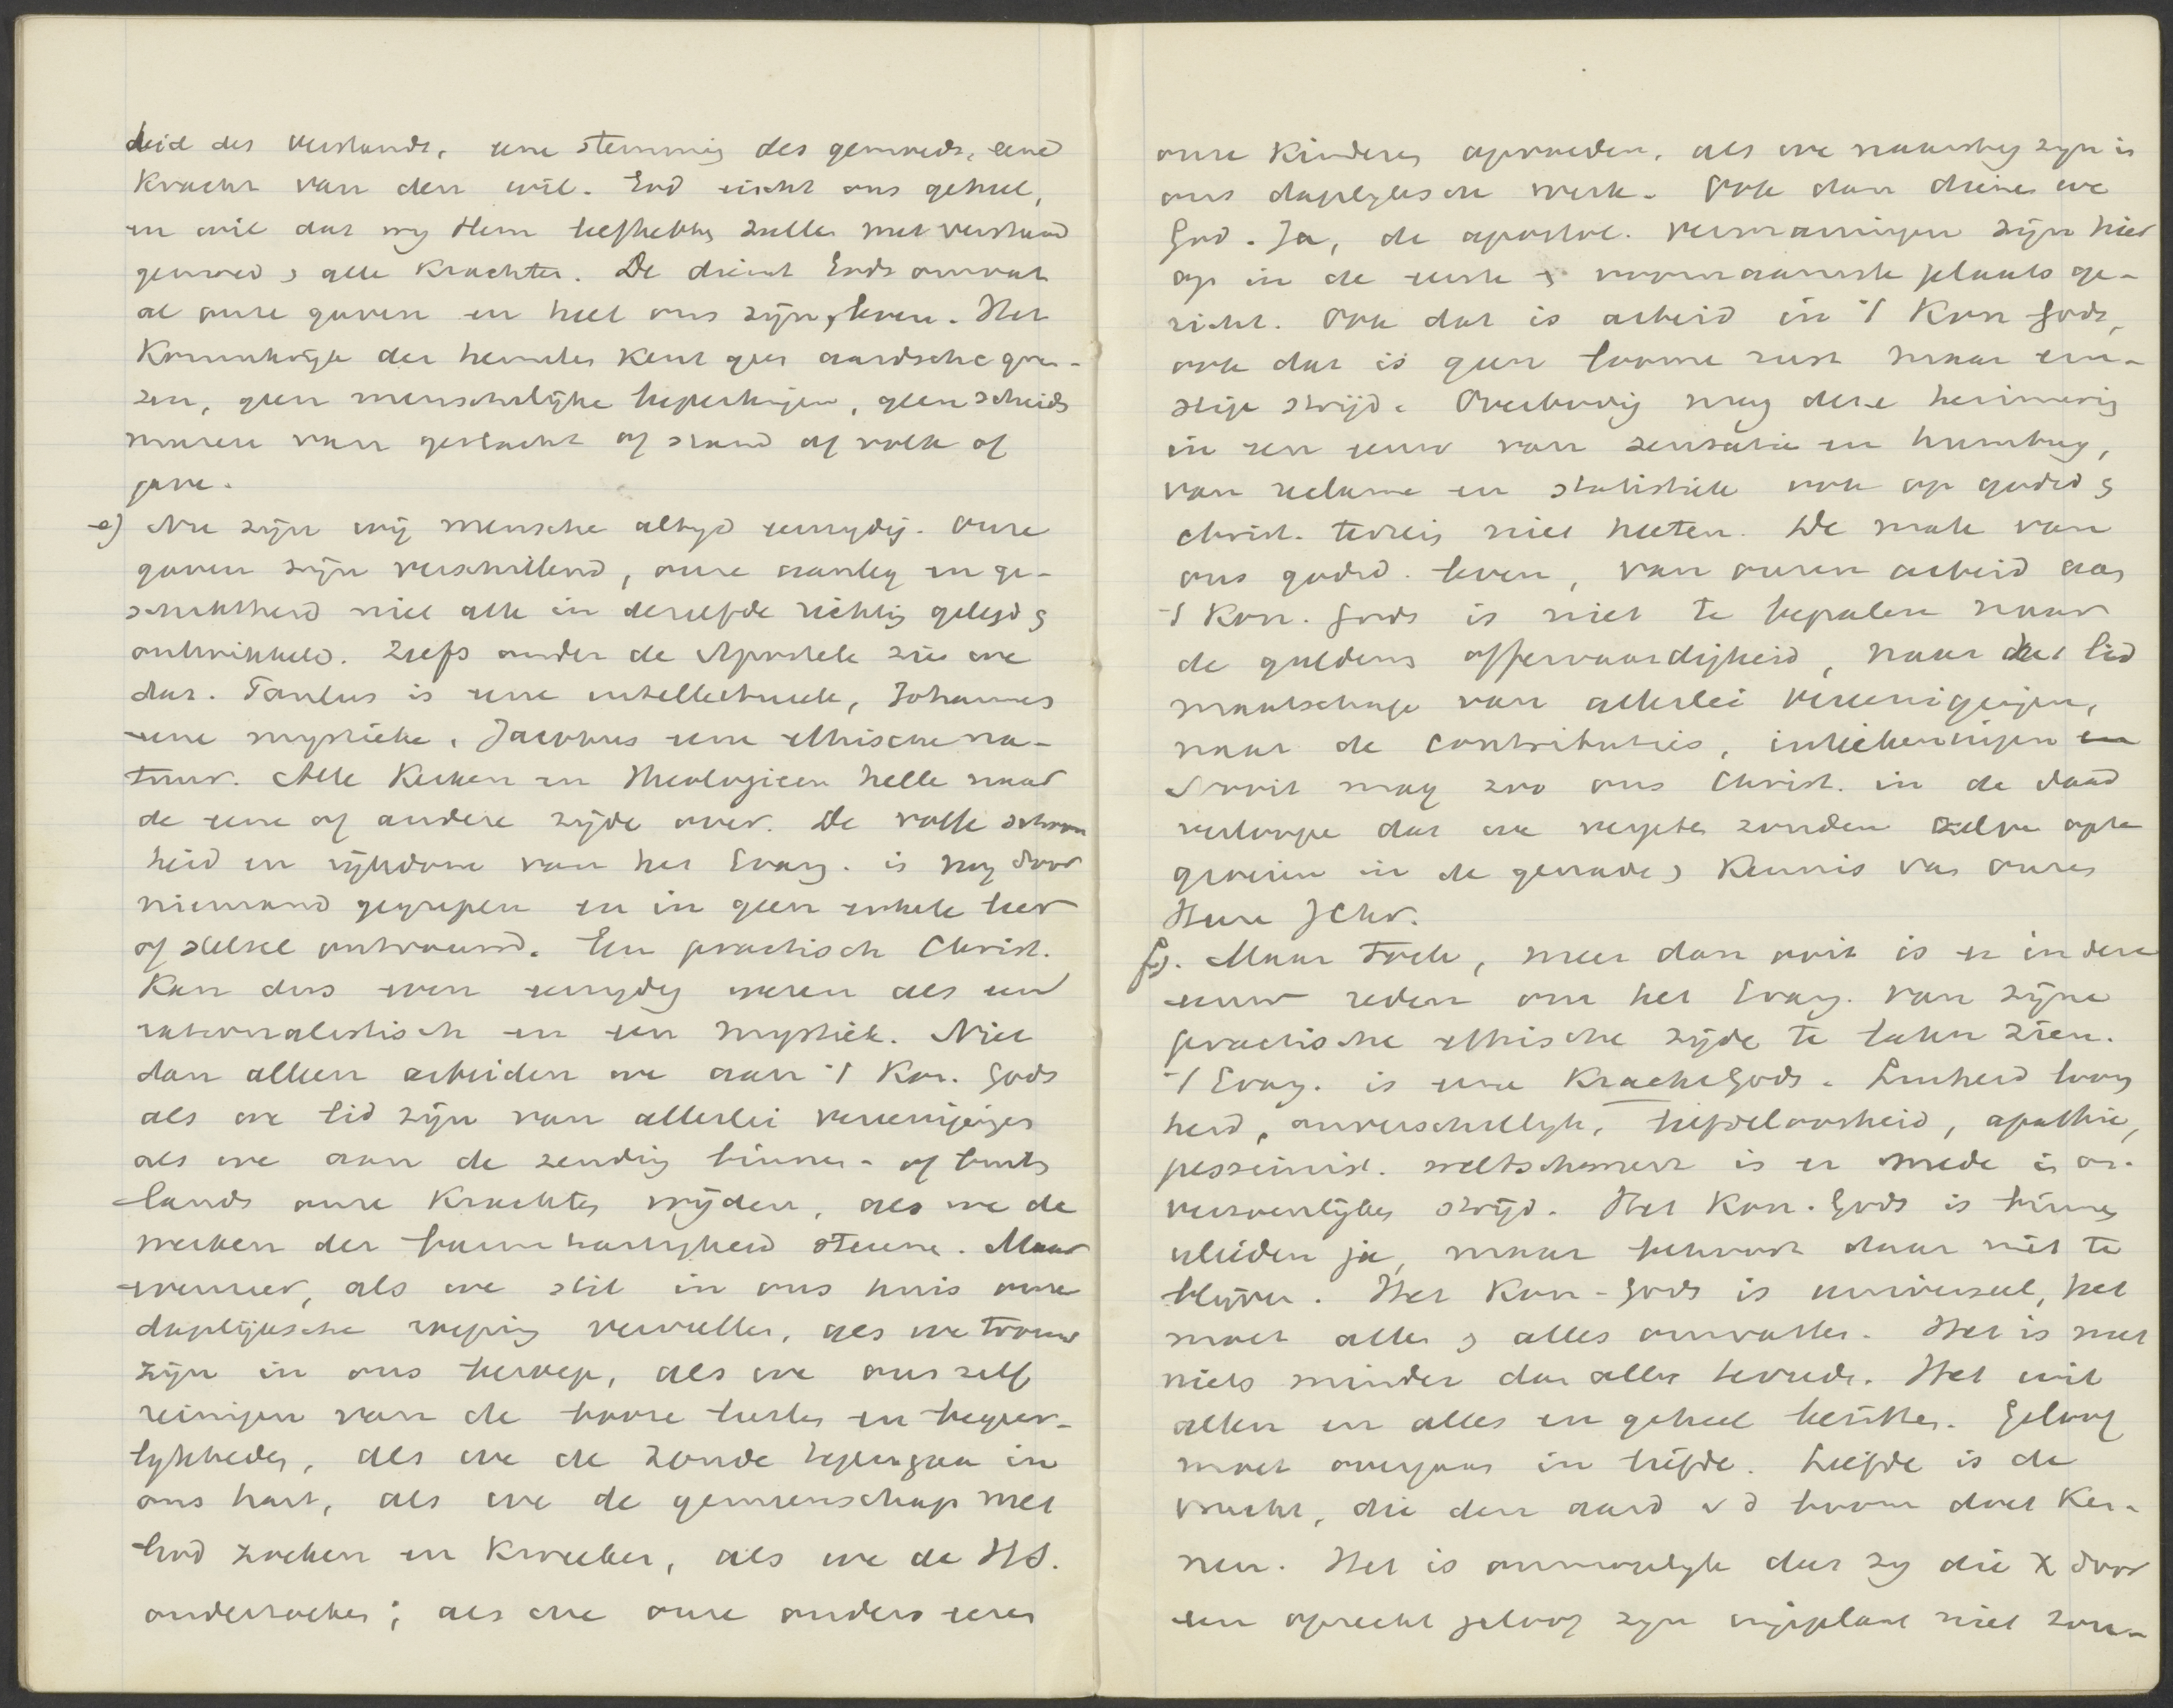 heid des verstands, eene stemming des gemoeds, eene
kracht van den wil. God eischt ons geheel,
en wil dat wij Hem liefhebben zullen met verstand
gemoed & alle krachten. De dienst Gods omvat
al onze gaven en heel ons zijn & leven. Het
Koninkrijk der hemelen kent geen aardsche gren-
zen, geen menschelijke beperkingen, geen scheids
muren van geslacht of stand of volk of
gave.
e) Nu zijn wij menschen altijd eenzijdig. Onze
gaven zijn verschillend, onze aanleg en ge-
schiktheid niet alle in dezelfde richting gelegd &
ontwikkeld. Zelfs onder de Apostelen zien we
dat. Paulus is eene intellectueele, Johannes
eene mystieke, Jacobus eene ethische na-
tuur. Alle Kerken en Theologieen hellen naar
de eene of andere zijde over. De volle schoon
heid en rijkdom van het Evang. is nog door
niemand gegrepen en in geen enkele leer
of stelsel ontvouwd. Een practisch Christ.
kan dus even eenzijdig wezen als een
rationalistisch en een mystiek. Niet
dan alleen arbeiden we aan 't Kon. Gods
als we lid zijn van allerlei vereenigingen
als we aan de zending binnen- of buiten
lands onze krachten wijden, als we de
werken der barmhartigheid steunen. Maar
evenzeer, als we stil in ons huis onze
dagelijksche roeping vervullen, als we trouw
zijn in ons beroep, als we ons zelf
reinigen van de booze lusten en begeer-
lijkheden, als we de zonde tegengaan in
ons hart, als we de gemeenschap met
God zoeken en kweeken, als we de HS.
onderzoeken; als we onze ouders eeren
onze kinderen opvoeden, als we naarstig zijn in
ons dagelijksch werk. Ook dan dienen we
God. Ja, de apostol. vermaningen zijn hier
op in de eerste & voornaamste plaats ge-
richt. Ook dat is arbeid in 't Kon Gods,
ook dat is geen loome rust maar ern-
stige strijd. Overbodig mag deze herinnering
in een eeuw van sensatie en humbug,
van reclame en statistiek ook op godsd &
christ. terrein niet heeten. De mate van
ons godsd. leven, van onzen arbeid aan
't Kon. Gods is niet te bepalen naar
de guldens offervaardigheid, naar het lid
maatschap van allerlei vereenigingen,
naar de contributies, inteekeningen en
Nooit mag zoo ons Christ. in de daad
verloopen dat we vergeten zouden zelve op te
groeien in de genade & kennis van onzen
Heere JChr.
f). Maar toch, meer dan ooit is er in deze
eeuw reden om het Evang. van zijne
practische ethische zijde te laten zien.
't Evang. is eene Kracht Gods. Luiheid traag
heid, onverschilligh, liefdeloosheid, apathie,
pessimist. weltschmerz is er mede in on-
verzoenlijken strijd. Het Kon. Gods is binnen
ulieden ja, maar behoort daar niet te
blijven. Het Kon- Gods is universeel, het
moet allen & alles omvatten. Het is met
niets minder dan alles tevreden. Het wil
allen en alles en geheel bezitten. Geloof
moet overgaan in liefde. Liefde is de
vrucht, die den aard v d boom doet ken-
nen. Het is onmogelijk dat zij die X door
een oprecht geloof zijn ingeplant niet zou-